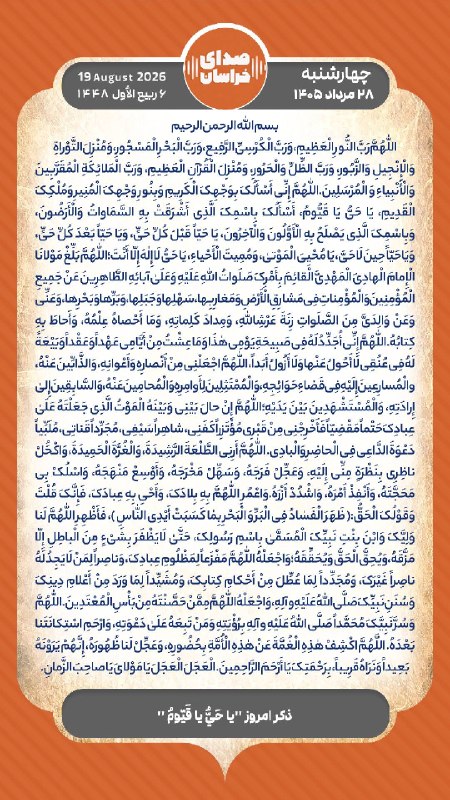 صدای
خراسان
چهارشنبه
۲۸ مرداد ۱۴۰۵
19 August 2026
۶ ربیع الأول ۱۴۴۸
بسم الله الرحمن الرحیم
اللّٰهُمَّ رَبَّ النُّورِ الْعَظِيمِ، وَرَبَّ الْكُرْسِيِّ الرَّفِيعِ، وَرَبَّ الْبَحْرِ الْمَسْجُورِ، وَمُنْزِلَ التَّوْراةِ
وَالْإِنْجِيلِ وَالزَّبُورِ، وَرَبَّ الظِّلِّ وَالْحَرُورِ، وَمُنْزِلَ الْقُرْآنِ الْعَظِيمِ، وَرَبَّ الْمَلائِكَةِ الْمُقَرَّبِينَ
وَالْأَنْبِياءِ وَالْمُرْسَلِينَ. اللّٰهُمَّ إِنِّي أَسْأَلُكَ بِوَجْهِكَ الْكَرِيمِ وَبِنُورِ وَجْهِكَ الْمُنِيرِ وَمُلْكِكَ
الْقَدِيمِ، يَا حَيُّ يَا قَيُّومُ، أَسْأَلُكَ بِاسْمِكَ الَّذِى أَشْرَقَتْ بِهِ السَّمَاوَاتُ وَالْأَرَضُونَ،
وَبِاسْمِكَ الَّذِى يَصْلَحُ بِهِ الْأَوَّلُونَ وَالْآخِرُونَ، يَا حَيّاً قَبْلَ كُلِّ حَيٍّ، وَيَا حَيّاً بَعْدَ كُلِّ حَيٍّ،
وَيَا حَيّاً حِينَ لَا حَيَّ، يَا مُحْيِيَ الْمَوْتىٰ، وَمُمِيتَ الْأَحْياءِ، يَا حَيُّ لَا إِلٰهَ إِلّا أَنْتَ؛ اللّٰهُمَّ بَلِّغْ مَوْلانَا
الْإِمامَ الْهادِىَ الْمَهْدِيَّ الْقائِمَ بِأَمْرِكَ صَلَواتُ اللّٰهِ عَلَيْهِ وَعَلَىٰ آبائِهِ الطَّاهِرِينَ عَنْ جَمِيعِ
الْمُؤْمِنِينَ وَالْمُؤْمِناتِ فِى مَشارِقِ الْأَرْضِ وَمَغارِبِها، سَهْلِها وَجَبَلِها، وَبَرِّها وَبَحْرِها، وَعَنِّى
وَعَنْ وَالِدَيَّ مِنَ الصَّلَواتِ زِنَةَ عَرْشِ اللّٰهِ، وَمِدادَ كَلِماتِهِ، وَمَا أَحْصاهُ عِلْمُهُ، وَأَحاطَ بِهِ
كِتابُهُ. اللّٰهُمَّ إِنِّى أُجَدِّدُ لَهُ فِى صَبِيحَةِ يَوْمِى هٰذَا وَمَا عِشْتُ مِنْ أَيَّامِى عَهْداً وَعَقْداً وَبَيْعَةً
لَهُ فِى عُنُقِى لَاأَحُولُ عَنْها وَلَا أَزُولُ أَبَداً. اللّٰهُمَّ اجْعَلْنِى مِنْ أَنْصارِهِ وَأَعْوانِهِ، وَالذَّابِّينَ عَنْهُ،
وَالْمُسارِعِينَ إِلَيْهِ فِى قَضاءِ حَوَائِجِهِ، وَالْمُمْتَثِلِينَ لِأَوامِرِهِ وَالْمُحامِينَ عَنْهُ، وَالسَّابِقِينَ إِلىٰ
إِرادَتِهِ، وَالْمُسْتَشْهَدِينَ بَيْنَ يَدَيْهِ؛ اللّٰهُمَّ إِنْ حالَ بَيْنِى وَبَيْنَهُ الْمَوْتُ الَّذِى جَعَلْتَهُ عَلَىٰ
عِبادِكَ حَتْماً مَقْضِيّاً فَأَخْرِجْنِى مِنْ قَبْرِى مُؤْتَزِراً كَفَنِى، شاهِراً سَيْفِى، مُجَرِّداً قَناتِى، مُلَبِّياً
دَعْوَةَ الدَّاعِى فِى الْحاضِرِ وَالْبادِى. اللّٰهُمَّ أَرِنِى الطَّلْعَةَ الرَّشِيدَةَ، وَالْغُرَّةَ الْحَمِيدَةَ، وَاكْحُلْ
ناظِرِى بِنَظْرَةٍ مِنِّى إِلَيْهِ، وَعَجِّلْ فَرَجَهُ، وَسَهِّلْ مَخْرَجَهُ، وَأَوْسِعْ مَنْهَجَهُ، وَاسْلُكْ بِى
مَحَجَّتَهُ، وَأَنْفِذْ أَمْرَهُ، وَاشْدُدْ أَزْرَهُ. وَاعْمُرِ اللّٰهُمَّ بِهِ بِلادَكَ، وَأَحْىِ بِهِ عِبادَكَ، فَإِنَّكَ قُلْتَ
وَقَوْلُكَ الْحَقُّ: (ظَهَرَ الْفَسادُ فِى الْبَرِّ وَالْبَحْرِ بِمَا كَسَبَتْ أَيْدِى النَّاسِ)، فَأَظْهِرِ اللّٰهُمَّ لَنا
وَلِيَّكَ وَابْنَ بِنْتِ نَبِيِّكَ الْمُسَمَّىٰ بِاسْمِ رَسُولِكَ، حَتَّىٰ لَا يَظْفَرَ بِشَىْءٍ مِنَ الْباطِلِ إِلّا
مَزَّقَهُ، وَيُحِقَّ الْحَقَّ وَيُحَقِّقَهُ؛ وَاجْعَلْهُ اللّٰهُمَّ مَفْزَعاً لِمَظْلُومِ عِبادِكَ، وَناصِراً لِمَنْ لَا يَجِدُ لَهُ
ناصِراً غَيْرَكَ، وَمُجَدِّداً لِمَا عُطِّلَ مِنْ أَحْكامِ كِتابِكَ، وَمُشَيِّداً لِمَا وَرَدَ مِنْ أَعْلامِ دِينِكَ
وَسُنَنِ نَبِيِّكَ صَلَّى اللّٰهُ عَلَيْهِ وَآلِهِ، وَاجْعَلْهُ اللّٰهُمَّ مِمَّنْ حَصَّنْتَهُ مِنْ بَأْسِ الْمُعْتَدِينَ. اللّٰهُمَّ
وَسُرَّ نَبِيَّكَ مُحَمَّداً صَلَّى اللّٰهُ عَلَيْهِ وَآلِهِ بِرُؤْيَتِهِ وَمَنْ تَبِعَهُ عَلَىٰ دَعْوَتِهِ، وَارْحَمِ اسْتِكانَتَنا
بَعْدَهُ. اللّٰهُمَّ اكْشِفْ هٰذِهِ الْغُمَّةَ عَنْ هٰذِهِ الْأُمَّةِ بِحُضُورِهِ، وَعَجِّلْ لَنا ظُهُورَهُ، إِنَّهُمْ يَرَوْنَهُ
بَعِيداً وَنَرَاهُ قَرِيباً، بِرَحْمَتِكَ يَا أَرْحَمَ الرَّاحِمِينَ. الْعَجَلَ الْعَجَلَ يَا مَوْلايَ يَا صاحِبَ الزَّمانِ.
ذکر امروز "یا حَيُّ یا قَیّومُ"